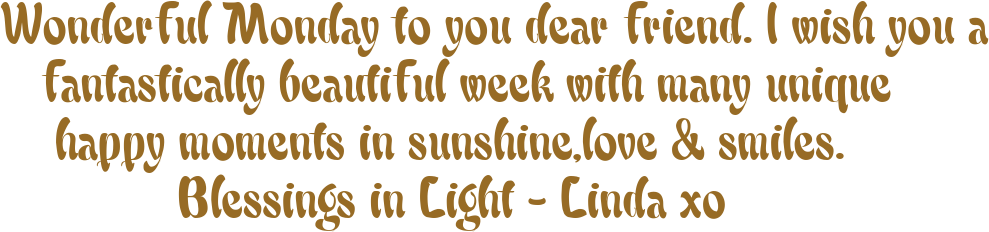 Wonderful Monday to you dear friend. I wish you a
fantastically beautiful week with many unique
happy moments in sunshine,love & smiles.
Blessings in Light - Linda xo